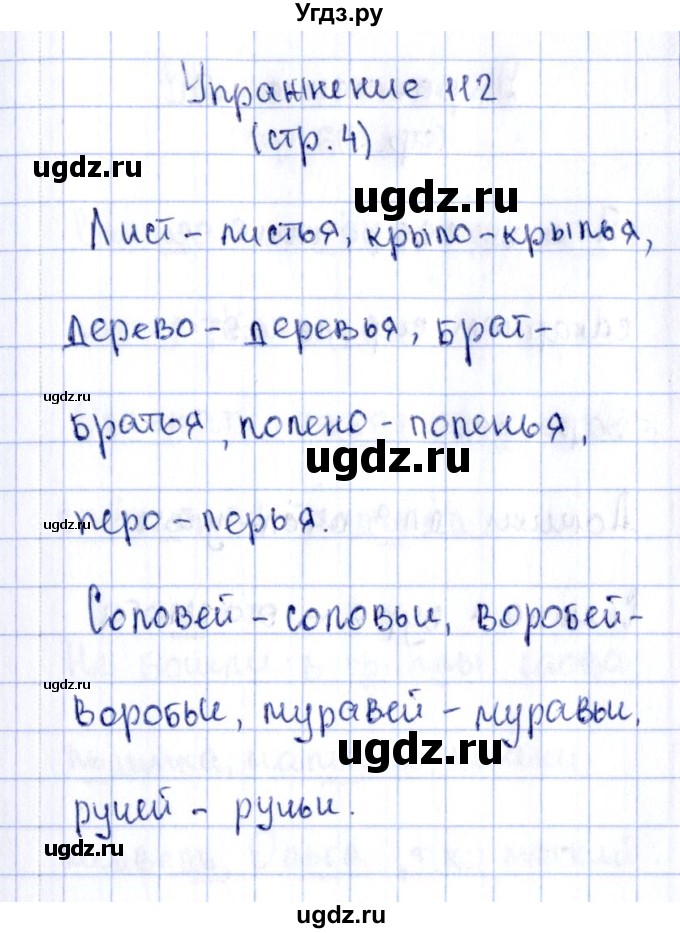 Угдз.ру
Упражнение 112
(стр. 4)
ugdz.ru
ugdz.ru
Лист - листья, крыло - крылья,
дерево - деревья, брат -
ugdz.ru
братья, полено - поленья,
ugdz.ru
ugdz.ru
перо - перья.
Соловей - соловьи, воробей -
ugdz.ru
воробьи, муравей - муравьи,
ugdz.ru
ручей - ручьи.
ugdz.ru
ugdz.ru